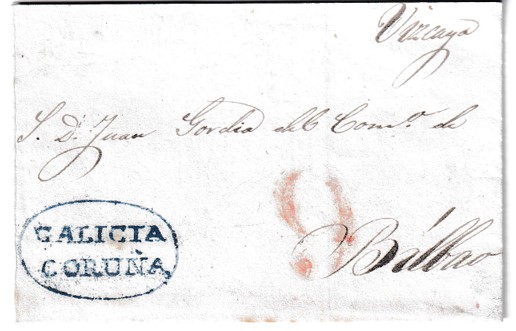 Vizcaya
S. D. Juan Gordia del Com.o de
9
Bilbao
GALICIA
CORUÑA